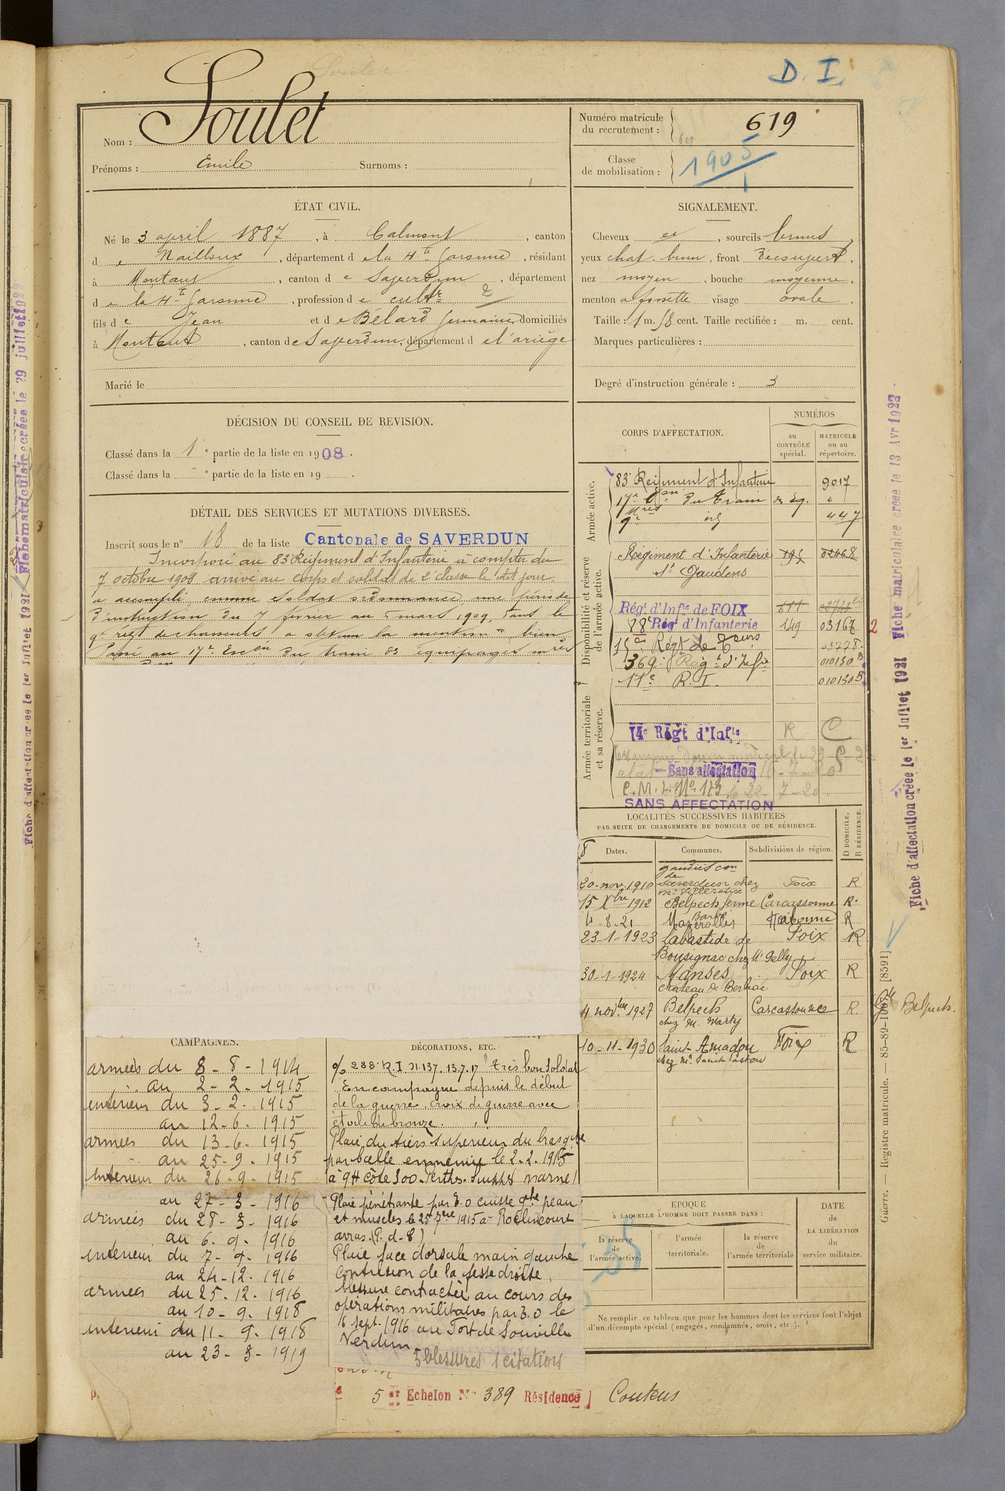 D. I.
Soulet
Nom :
Prénoms : Emile Surnoms :
Numéro matricule du recrutement : 619
Classe de mobilisation : 1905
ÉTAT CIVIL.
Né le 3 april 1887, à Calmont, canton
de Nailloux, département de la Hte Garonne, résidant
à Montaut, canton de Saverdun, département
de la Hte Garonne, profession de cultr
fils de Jean et de Bélard Germaine domiciliés
à Montaut, canton de Saverdun, département de l'ariège
Marié le
SIGNALEMENT.
Cheveux et, sourcils bruns
yeux chat. brun, front découvert
nez moyen, bouche moyenne
menton à fossette visage ovale
Taille : 1 m. 58 cent. Taille rectifiée : m. cent.
Marques particulières :
Degré d'instruction générale : 3
DÉCISION DU CONSEIL DE REVISION.
Classé dans la 1e partie de la liste en 1908.
Classé dans la e partie de la liste en 19 .
DÉTAIL DES SERVICES ET MUTATIONS DIVERSES.
Inscrit sous le n° 18 de la liste Cantonale de SAVERDUN
Incorporé au 83 Régiment d'Infanterie à compter du
7 octobre 1908 arrivé au corps et soldat de 2e classe le dit jour
a accompli comme soldat ordonnance une période
d'instruction du 7 février au mars 1909, dans le
9e régt de chasseurs a obtenu la mention "bien"
Passé au 17e Escon du train des équipages
CORPS D'AFFECTATION.
NUMÉROS
au CONTRÔLE spécial.
MATRICULE ou au répertoire.
Armée active.
83 Régiment d'Infanterie 9017
17e Escon du Train
447
Disponibilité et réserve de l'armée active.
Régiment d'Infanterie
St Gaudens
Régt d'Infie de FOIX
88e Régt d'Infanterie 149 03167 2
15e Régt de
369e Rég. d'Infie 010130
11e R. I. 010130
Armée territoriale et sa réserve.
14e Régt d'Infie R C
Sans affectation
SANS AFFECTATION
LOCALITÉS SUCCESSIVES HABITÉES
PAR SUITE DE CHANGEMENTS DE DOMICILE OU DE RÉSIDENCE.
Dates. Communes. Subdivisions de région. D DOMICILE. R RÉSIDENCE.
20-nov. 1910 Saverdun chez Foix R
15 Xbre 1912 Belpech ferme Carcassonne R.
4-8-21 Mazerolles Narbonne R
23-1-1923 Labastide de Bousignac chez Mr Gelly Foix R
30.1-1924 Manses Foix R
4 novbre 1927 Belpech chez M. Marty Carcassonnes R.
Belpech.
10-11-1930 Saint-Amadou Foix R
CAMPAGNES.
armées du 8-8-1914
au 2-2-1915
intérieur du 3-2-1915
au 12-6-1915
armées du 13-6-1915
au 25-9-1915
intérieur du 26-9-1915
au 27-3-1916
armées du 28-3-1916
au 6-9-1916
intérieur du 7-9-1916
au 24-12-1916
armées du 25-12-1916
au 10-9-1918
intérieur du 11-9-1918
au 23-3-1919
DÉCORATIONS, ETC.
o/ 288e R.I n.137. 13.7.17 "Très bon soldat
En campagne depuis le début
de la guerre. croix de guerre avec
étoile de bronze.
Plaie du tiers supérieur du bras gche
par balle ennemie le 2-2-1915
à 9H côte 200-Perthes-Suippes marne
Plaie pénétrante par E.O cuisse gche peau
et muscles le 25 7bre 1915 à Roclincourt
arras (P. d-C)
Plaie face dorsale main gauche
Contusion de la fesse droite.
blessure contractée au cours des
opérations militaires par E.O le
16 sept. 1916 au Fort de Souville
Verdun
5 blessures 1 citation
ÉPOQUE
À LAQUELLE L'HOMME DOIT PASSER DANS :
la réserve de l'armée active.
l'armée territoriale.
la réserve de l'armée territoriale
DATE de LA LIBÉRATION du service militaire.
Ne remplir ce tableau que pour les hommes dont les services font l'objet
d'un décompte spécial (engagés, condamnés, omis, etc.).
5 er Echelon No 389 Résidence Coutens
Fiche d'affectation créée le 1er Juillet 1921
Fiche matriculaire créée le 29 juillet
Fiche d'affectation créée le 1er Juillet 1921
Fiche matriculaire créée le 13 Avr 1923
Guerre. — Registre matricule. — 85-89-1907. [8591]